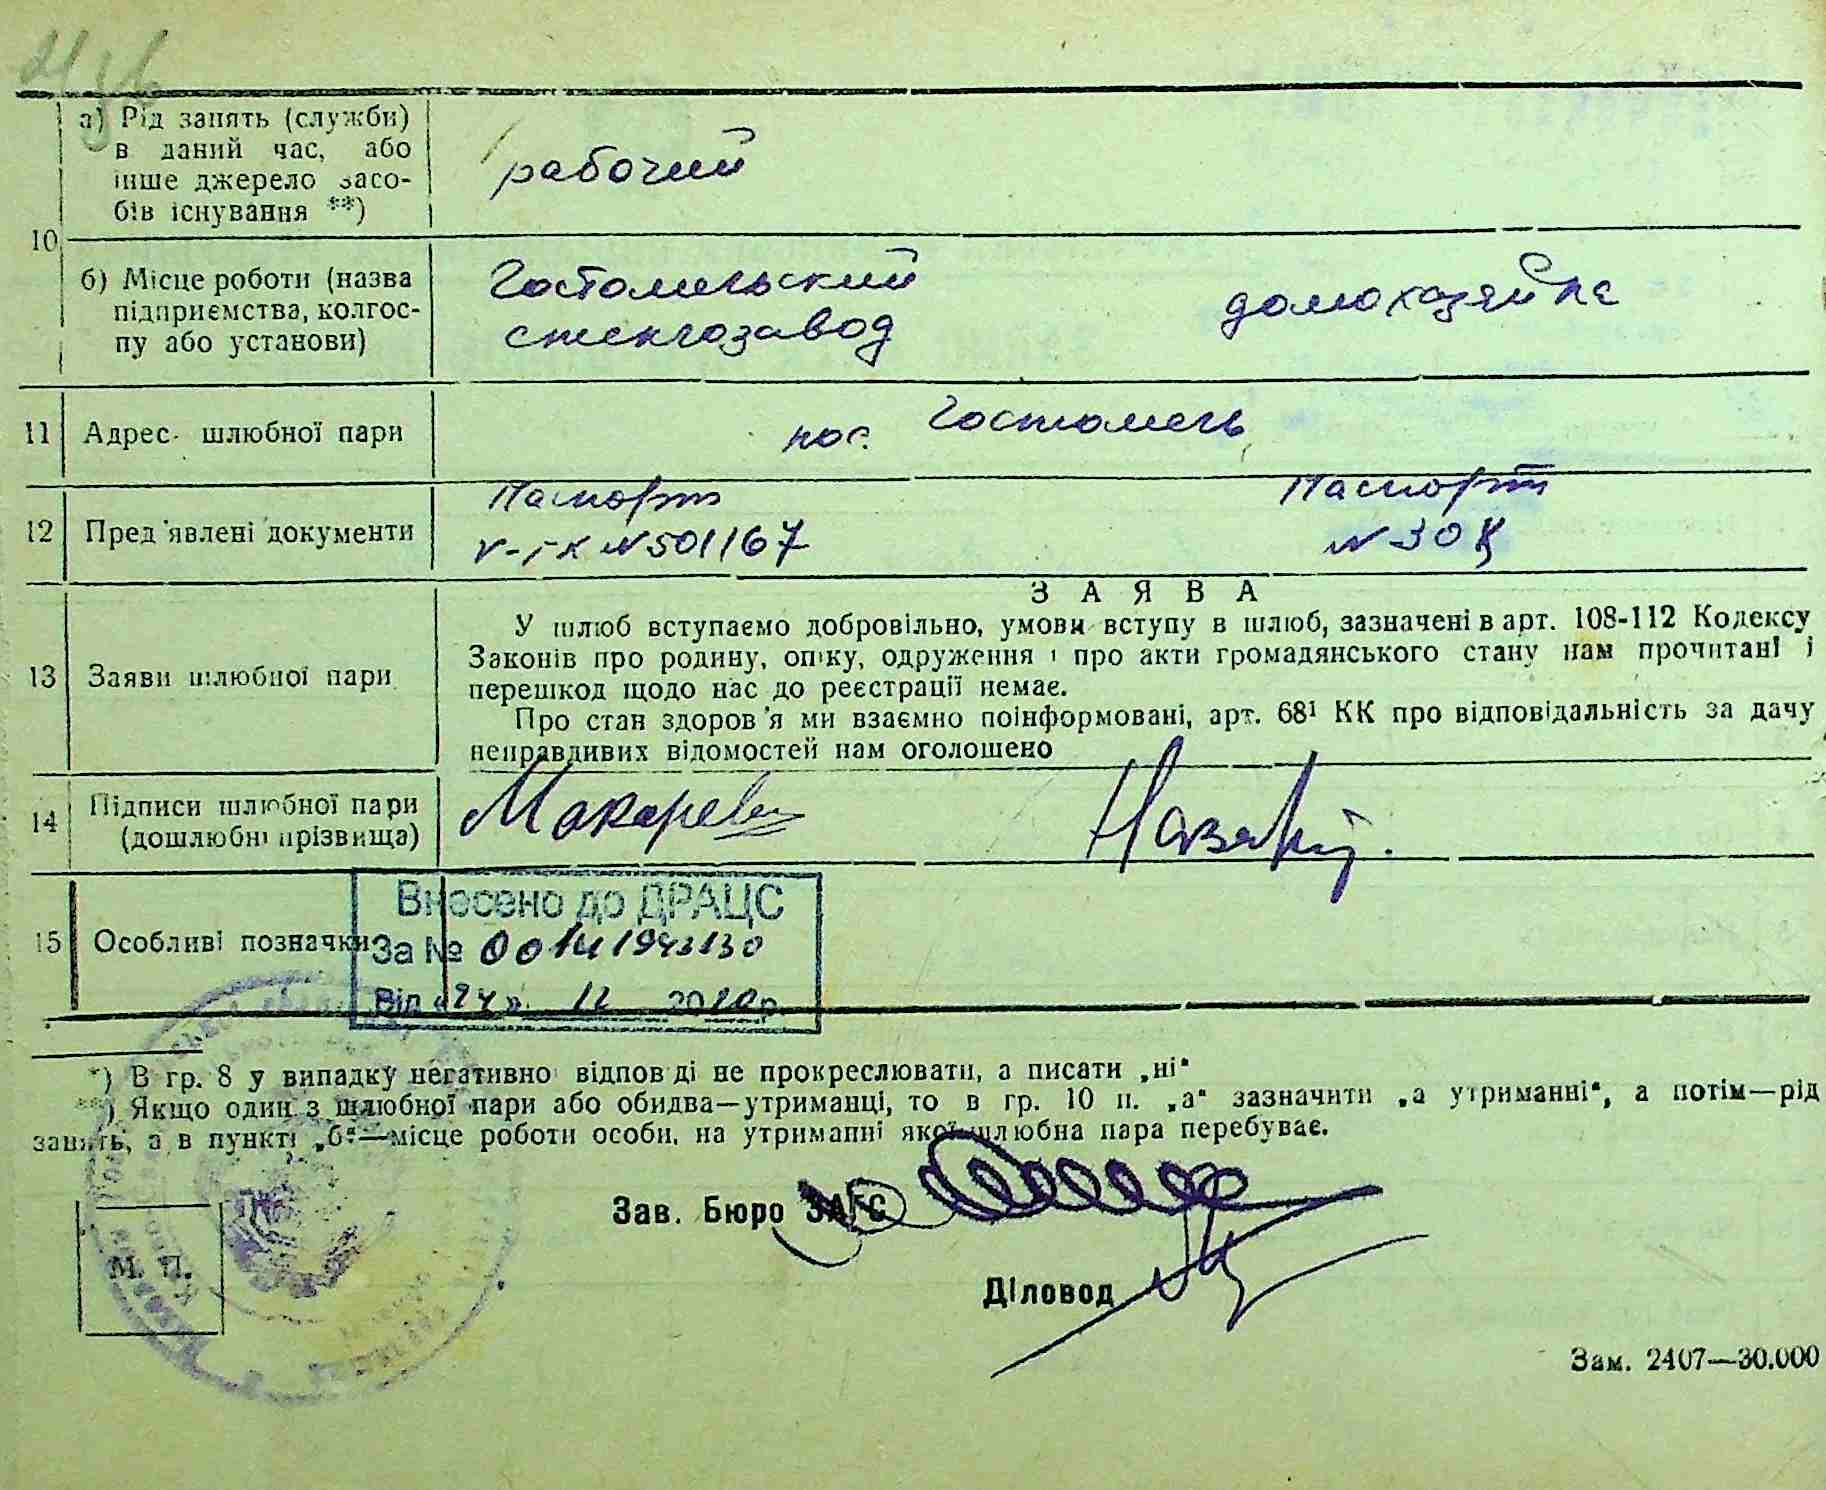 а) Рід занять (служби)
в даний час, або
інше джерело засо-
бів існування **)
рабочий
10
б) Місце роботи (назва
підприємства, колгос-
пу або установи)
Гостомельский
стеклозавод
домохозяйка
11 Адрес шлюбної пари
пос. Гостомель
12 Пред'явлені документи
Паспорт
№ 501167
Паспорт
№ 30
З А Я В А
13 Заяви шлюбної пари
У шлюб вступаємо добровільно, умови вступу в шлюб, зазначені в арт. 108-112 Кодексу
Законів про родину, опіку, одруження і про акти громадянського стану нам прочитані і
перешкод щодо нас до реєстрації немає.
Про стан здоров'я ми взаємно поінформовані, арт. 68¹ КК про відповідальність за дачу
неправдивих відомостей нам оголошено
14 Підписи шлюбної пари
(дошлюбні прізвища)
Макаревич
15 Особливі позначки
Внесено до ДРАЦС
За № 00141943130
Від «24» 12 2010 р.
*) В гр. 8 у випадку негативної відповіді не прокреслювати, а писати „ні“
**) Якщо один з шлюбної пари або обидва—утриманці, то в гр. 10 п. „а“ зазначити „а утриманні“, а потім—рід
занять, а в пункті „б“—місце роботи особи, на утриманні якої шлюбна пара перебуває.
Зав. Бюро ЗАГС
Діловод
М. П.
Зам. 2407—30.000